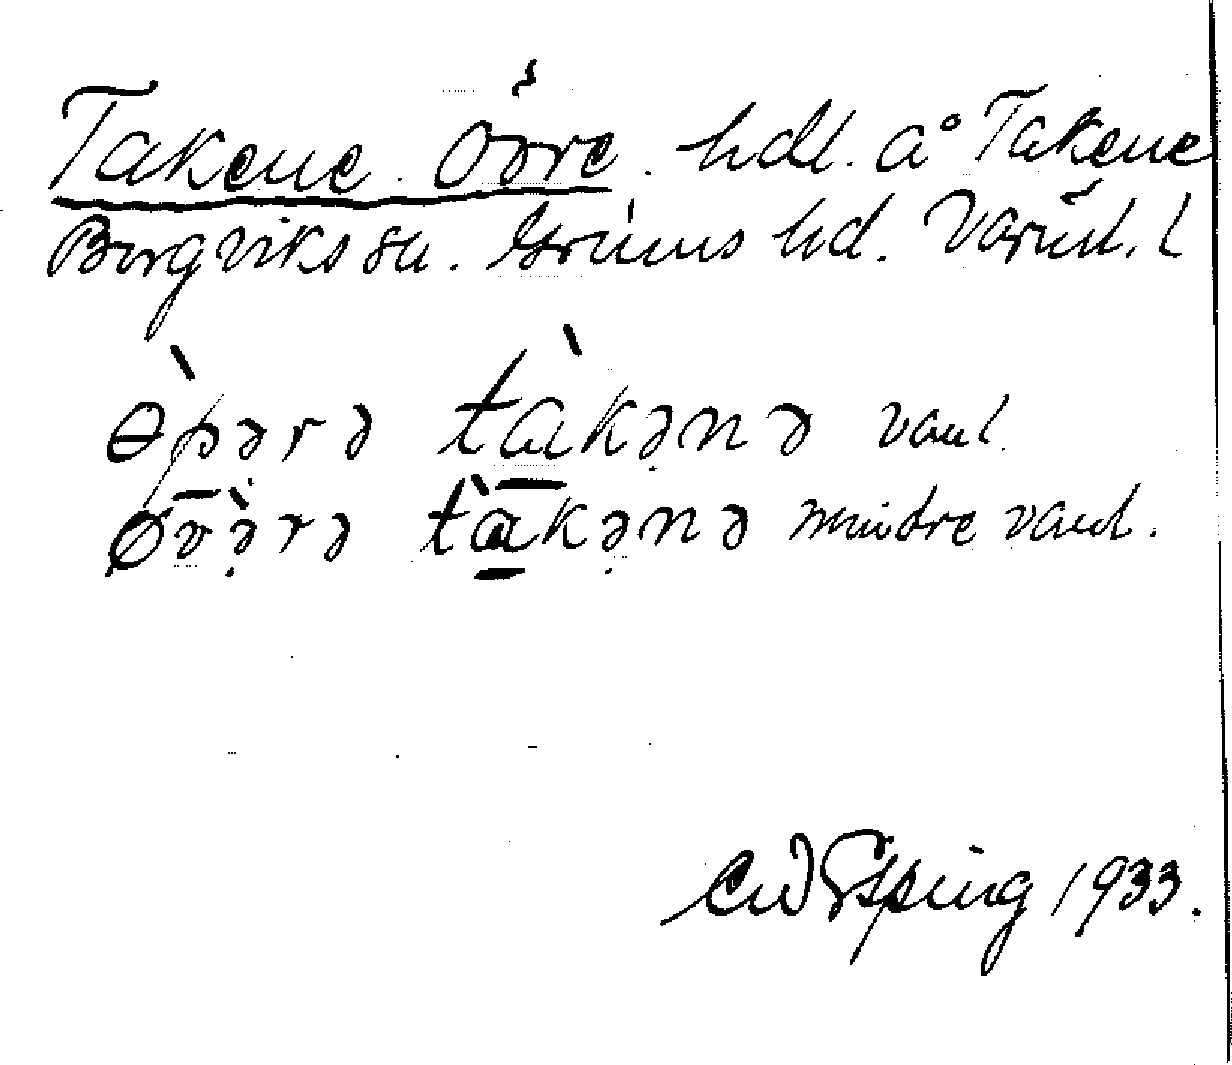 Takene Övre. hdl. å Takene
Borgviks sn. Grums hd. Värml.
ɵ̀pərə tàkənə vanl.
øvə̀rə tàkənə mindre vanl.
Erd Esping 1933.